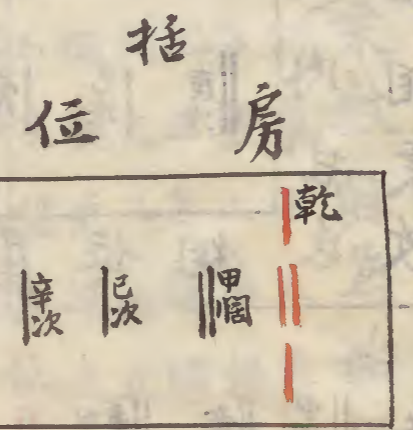 括
房位
乾
甲濶
己次
辛次